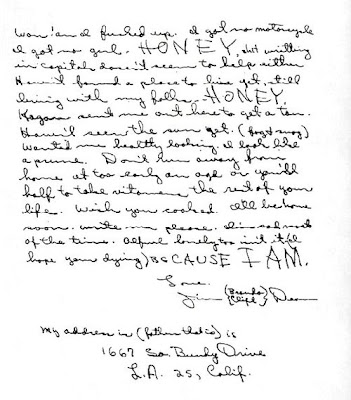 won! and I fucked up. I got no motorcycle
I got no girl. HONEY, shit writing
in capitals doesn't seem to help either
Haven't found a place to live yet, still
living with my father. HONEY
Kazan sent me out here to get a tan.
Haven't seen the sun yet. (fog & smog)
Wanted me healthy looking. I look like
a prune. Don't run away from
home at too early an age or you'll
half to take vitamens the rest of your
life. Wish you cooked. I'll be home
soon. write me please. I'm sad most
of the time. Awful lonely too isn't it (I
hope your dying) BECAUSE I AM.
Love.
Jim (Brando Clift) Dean
My address in (father that is) is
1667 So. Bundy Drive
L.A. 25, Calif.